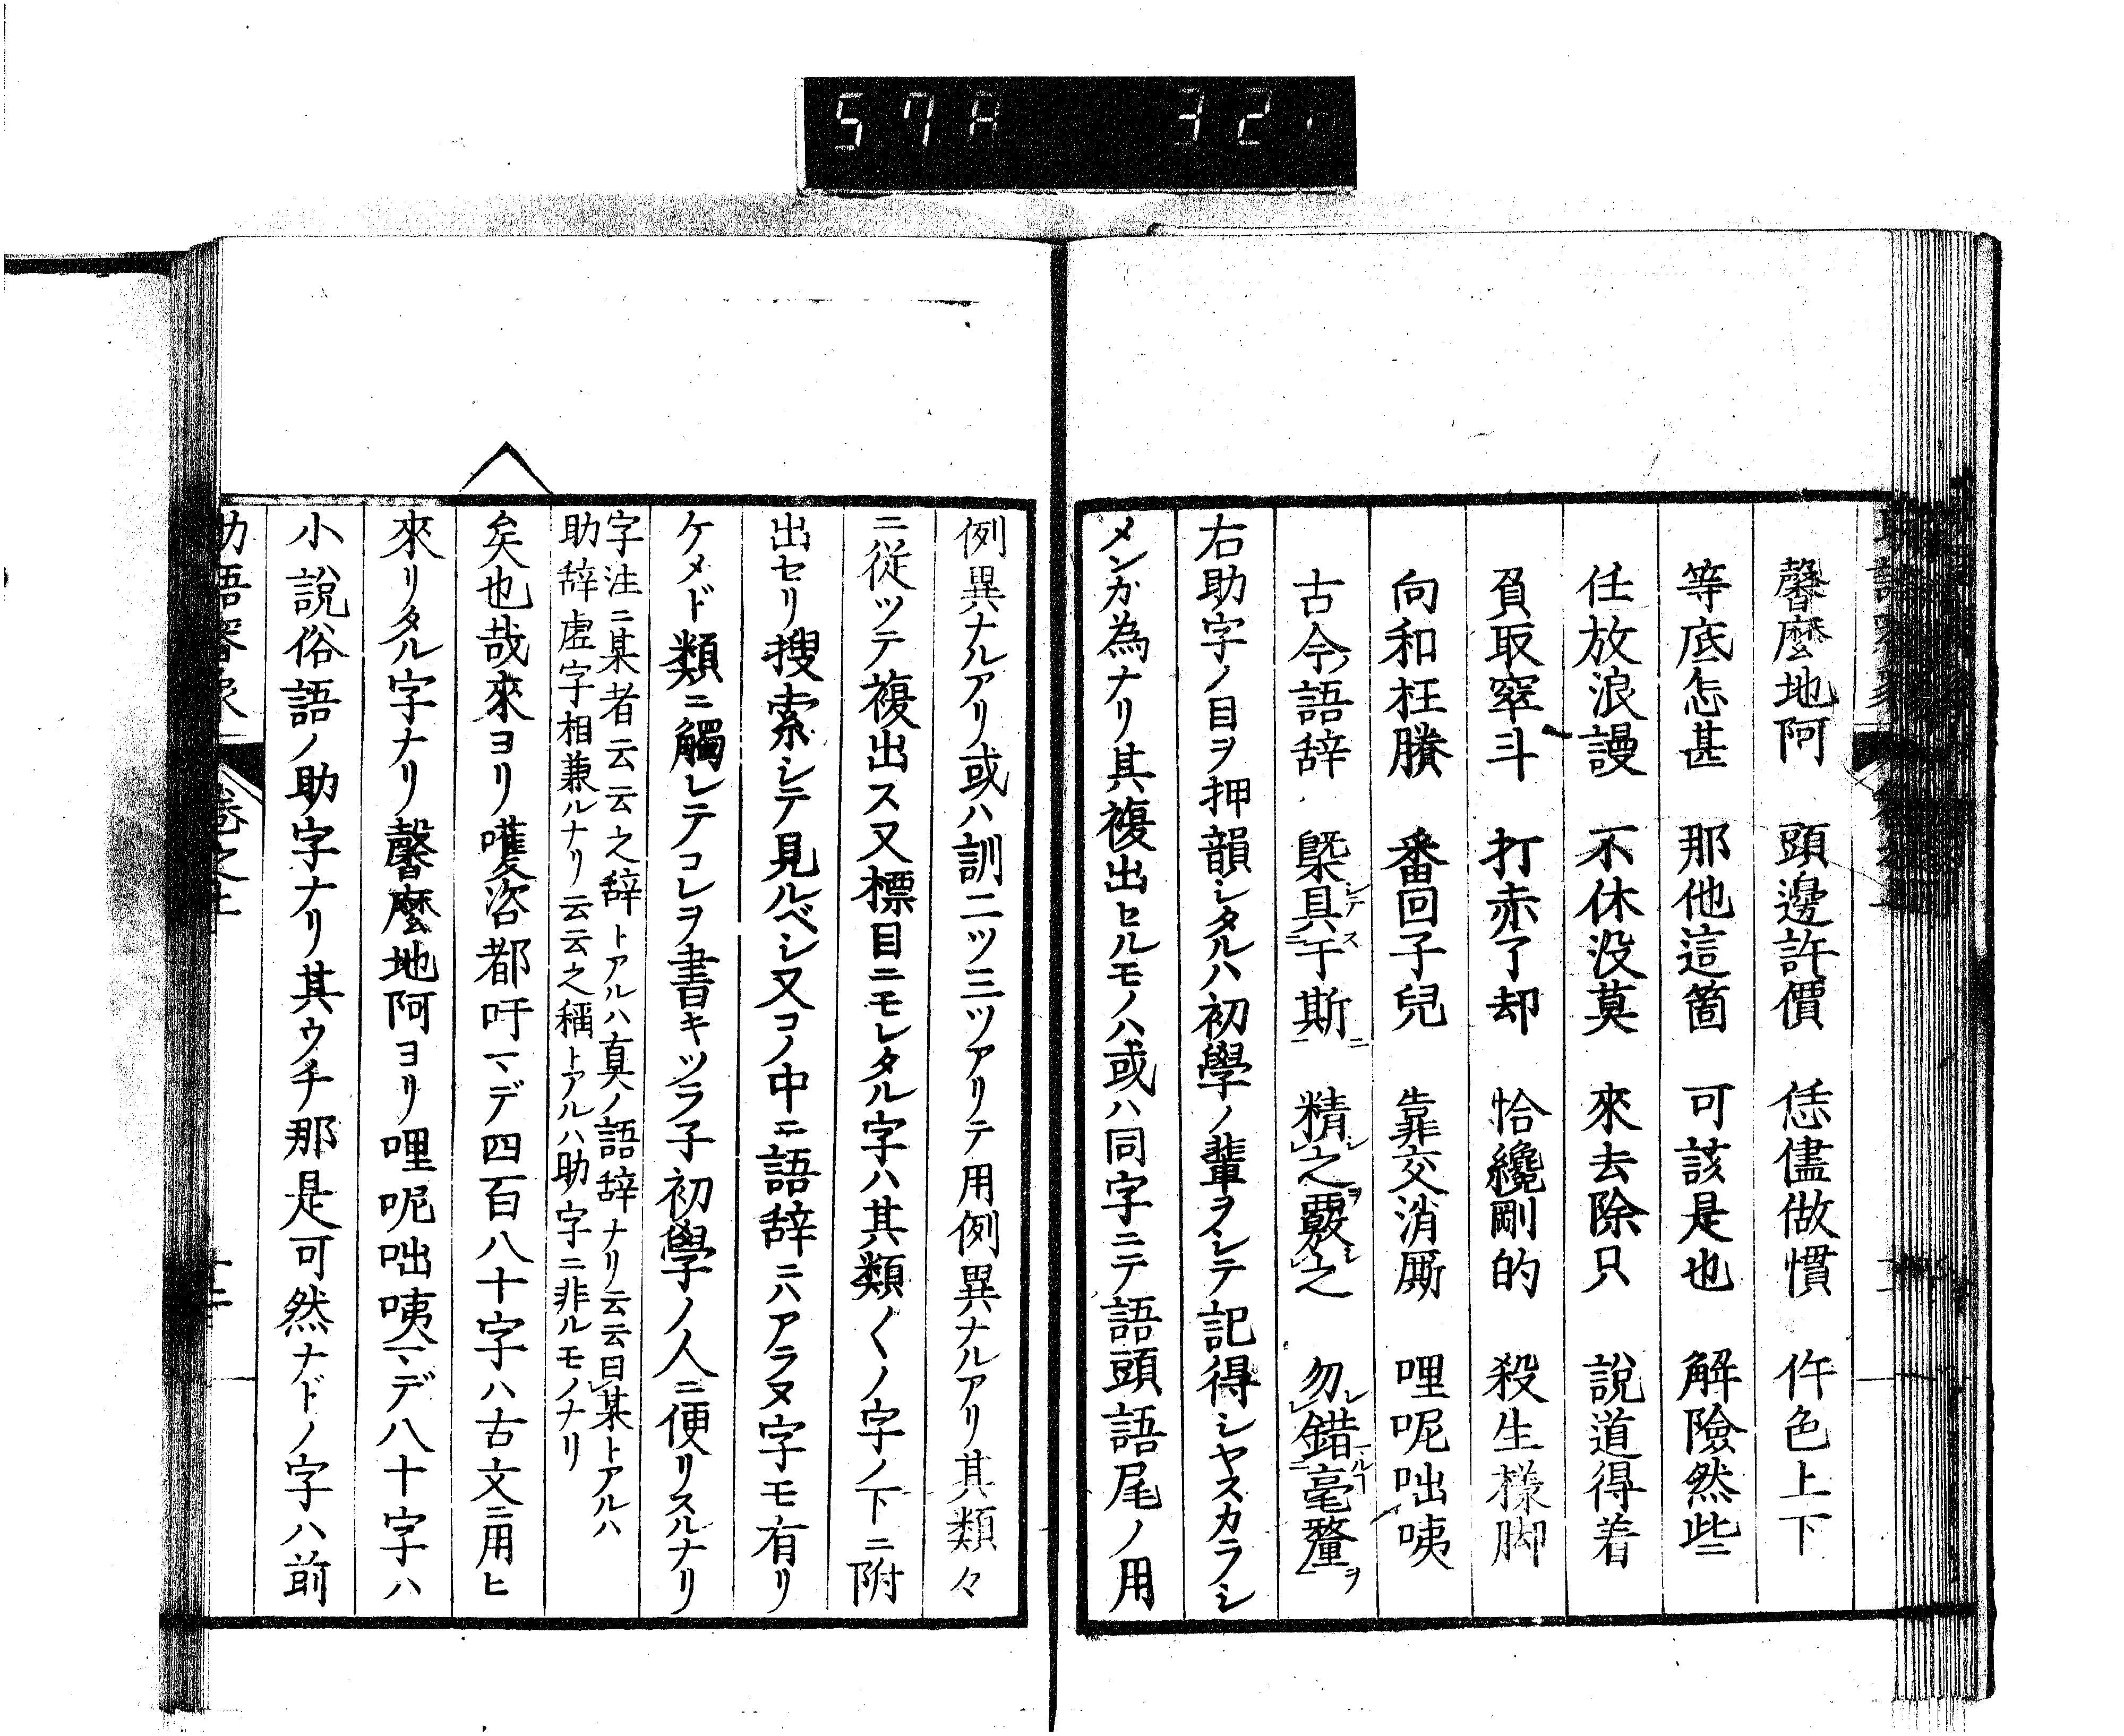 57A 32
馨麼地阿 頭邊許價 恁儘做慣 仵色上下
等底怎甚 那他這箇 可該是也 解險然些
任放浪謾 不休没莫 來去除只 說道得着
負取窣斗 打赤了却 恰纔剛的 殺生様脚
向和枉賸 番回子兒 靠交消厮 哩呢咄咦
古今語辞 槩具于斯 精之覈之 勿錯毫釐
右助字ノ目ヲ押韻シタルハ初學ノ輩ヲシテ記得シヤスカラシ
メンガ為ナリ其複出セルモノハ或ハ同字ニテ語頭語尾ノ用
例異ナルアリ或ハ訓二ツ三ツアリテ用例異ナルアリ其類々
ニ従ツテ複出ス又標目ニモレタル字ハ其類〱ノ字ノ下ニ附
出セリ搜索シテ見ルベシ又コノ中ニ語辞ニハアラヌ字モ有リ
ケメド類ニ觸レテコレヲ書キツラ子初學ノ人ニ便リスルナリ
字注ニ某者云云之辞トアルハ真ノ語辞ナリ云云曰某トアルハ
助辞虚字相兼ルナリ云云之稱トアルハ助字ニ非ルモノナリ
矣也哉來ヨリ嚄咨都吁マデ四百八十字ハ古文ニ用ヒ
來リタル字ナリ馨麼地阿ヨリ哩呢咄咦マデ八十字ハ
小說俗語ノ助字ナリ其ウチ那是可然ナドノ字ハ前